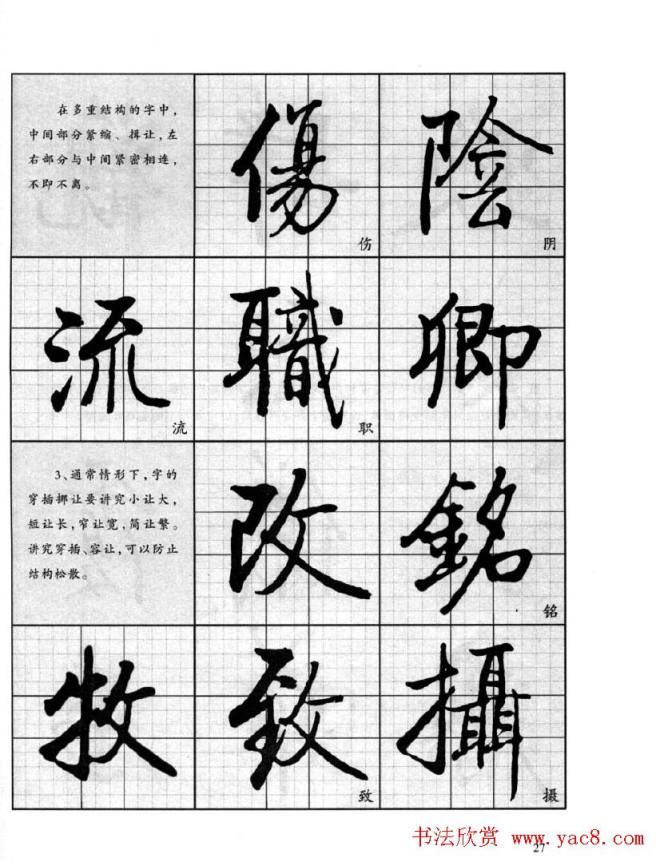 在多重结构的字中，
中间部分紧缩、揖让，左
右部分与中间紧密相连，
不即不离。
傷
伤
陰
阴
流
流
職
职
卿
3、通常情形下，字的
穿插挪让要讲究小让大，
短让长，窄让宽，简让繁。
讲究穿插、容让，可以防止
结构松散。
改
銘
铭
牧
致
致
攝
摄
27
书法欣赏 www.yac8.com